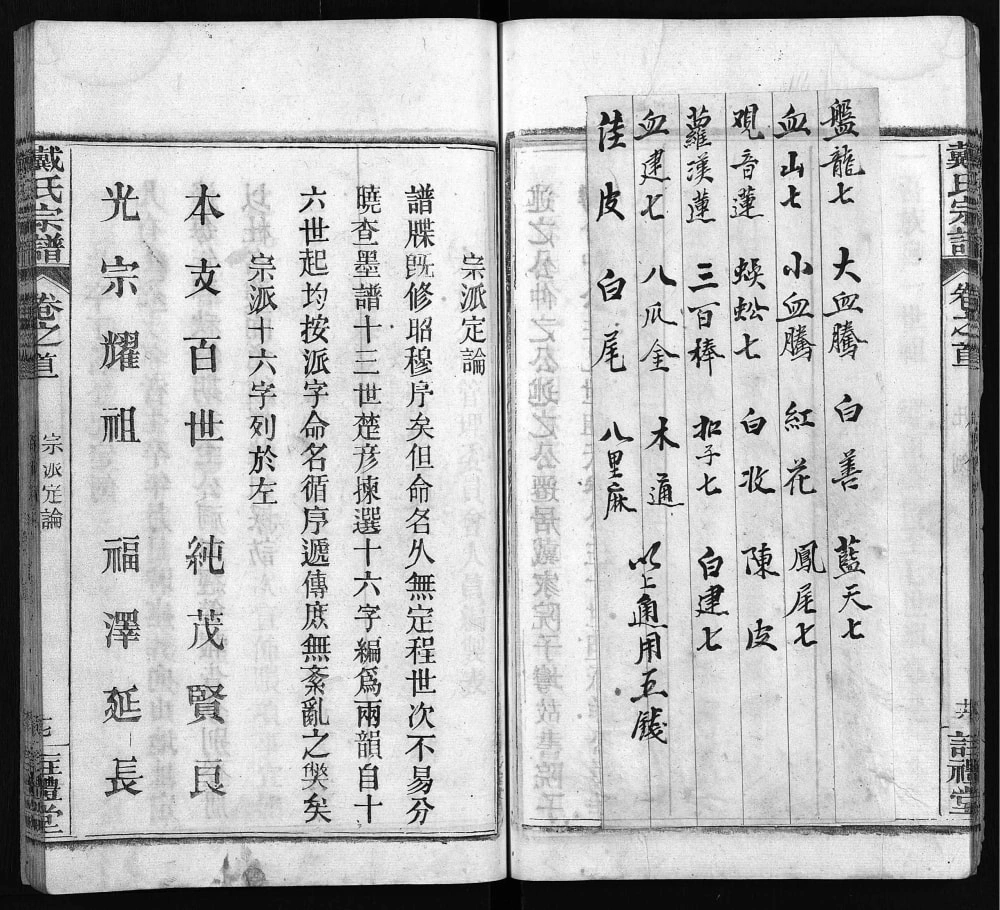 戴氏宗譜
卷之首
詒禮堂
盤龍七 大血騰 白善 藍天七
血山七 小血騰 紅花 鳳尾七
观音蓮 蜈蚣七 白収 陳皮
蘿漢蓮 三百棒 扣子七 白建七
血建七 八瓜金 木通
以上通用五錢
佳皮 白尾 八里麻
宗派定論
譜牒旣修昭穆序矣但命名久無定程世次不易分
曉查墨譜十三世楚彦揀選十六字編爲兩韻自十
六世起均按派字命名循序遞傳庶無紊亂之獘矣
宗派十六字列於左
本支百世 純茂賢良
光宗耀祖 福澤延長
戴氏宗譜
卷之首
宗派定論
禮堂